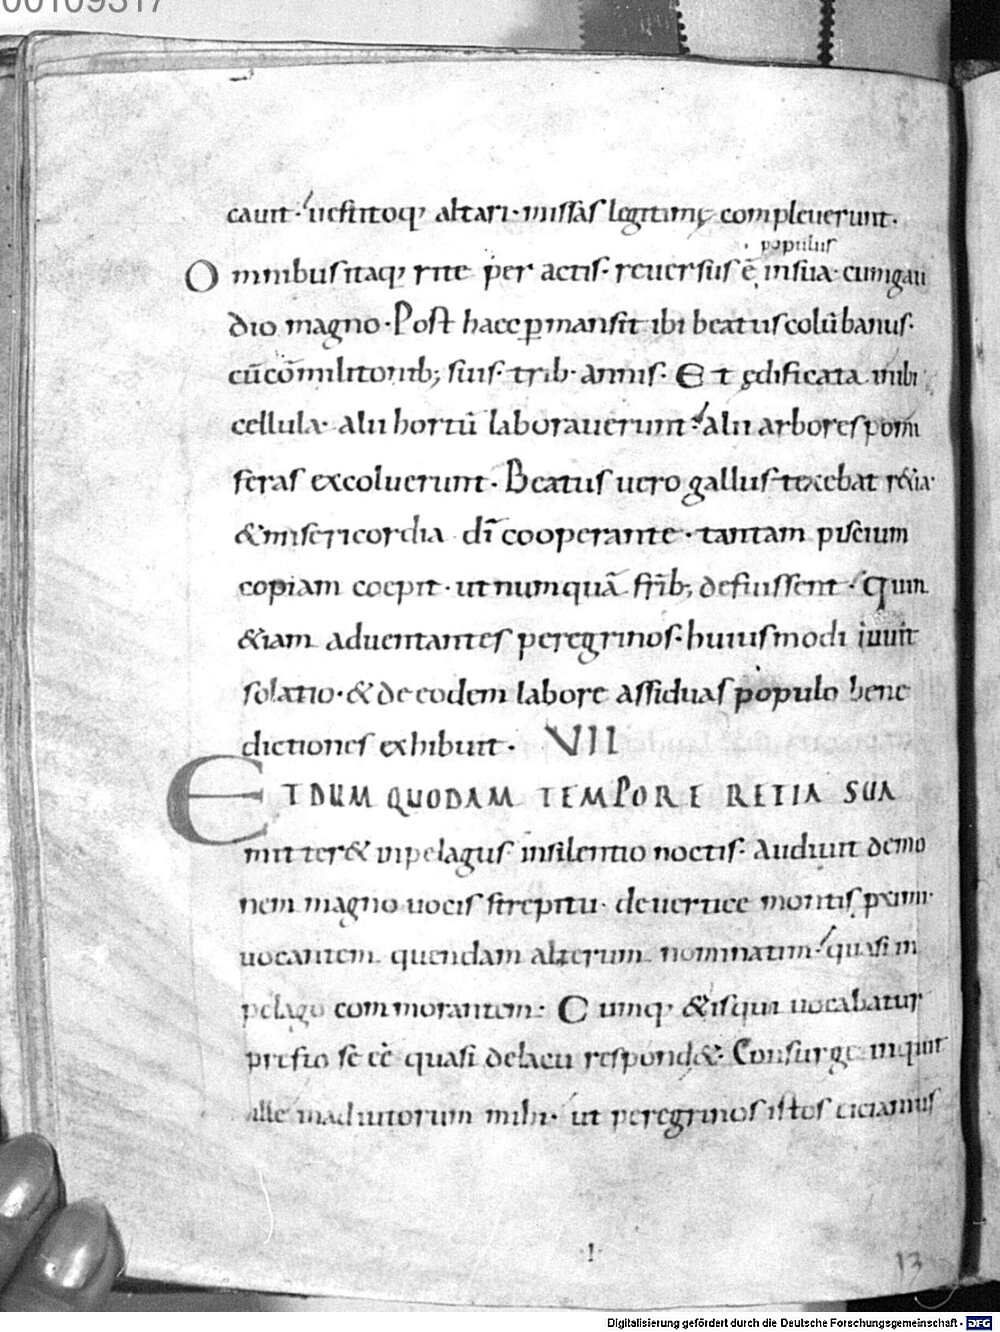 00109317
cauit · uestitoq; altari · missas legitimę compleuerunt .
populus
Omnibus itaq; rite per actis · reuersus ē insua · cumgau
dio magno · Post haec ꝑmansit ibi beatus colūbanus ·
cū cōmilitonib; suis · trib · annis · Et ędificata inibi
cellula · alii hortū laborauerunt · alii arbores pomi
feras excoluerunt · Beatus uero gallus texebat r&ia ·
& misericordia dī cooperante · tantam piscium
copiam coepit · ut numquā frīb; defuissent · Quin
&iam aduentantes peregrinos · huiusmodi iuuit
solatio · & de eodem labore assiduas populo bene
dictiones exhibuit · VII
ET DUM QUODAM TEMPORE RETIA SUA
mitter& inpelagus insilentio noctis · Audiuit demo
nem magno uocis strepitu · deuertice montis pximi ·
uocantem quendam alterum nominatim · quasi in
pelago commorantem · Cumq; &isqui uocabatur
presto se eē quasi delacu respond& · Consurge inquit
ille inadiutorium mihi · ut peregrinos istos eiciamus
13
Digitalisierung gefördert durch die Deutsche Forschungsgemeinschaft - DFG